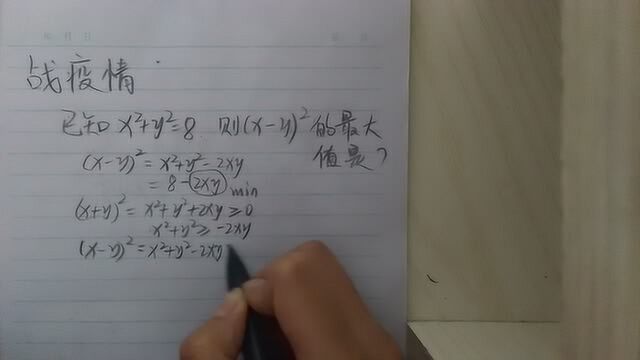 战疫情
已知 x²+y²=8 则(x-y)²的最大
值是?
(x-y)²=x²+y²-2xy
=8-2xy min
(x+y)²=x²+y²+2xy≥0
x²+y²≥-2xy
(x-y)²=x²+y²-2xy